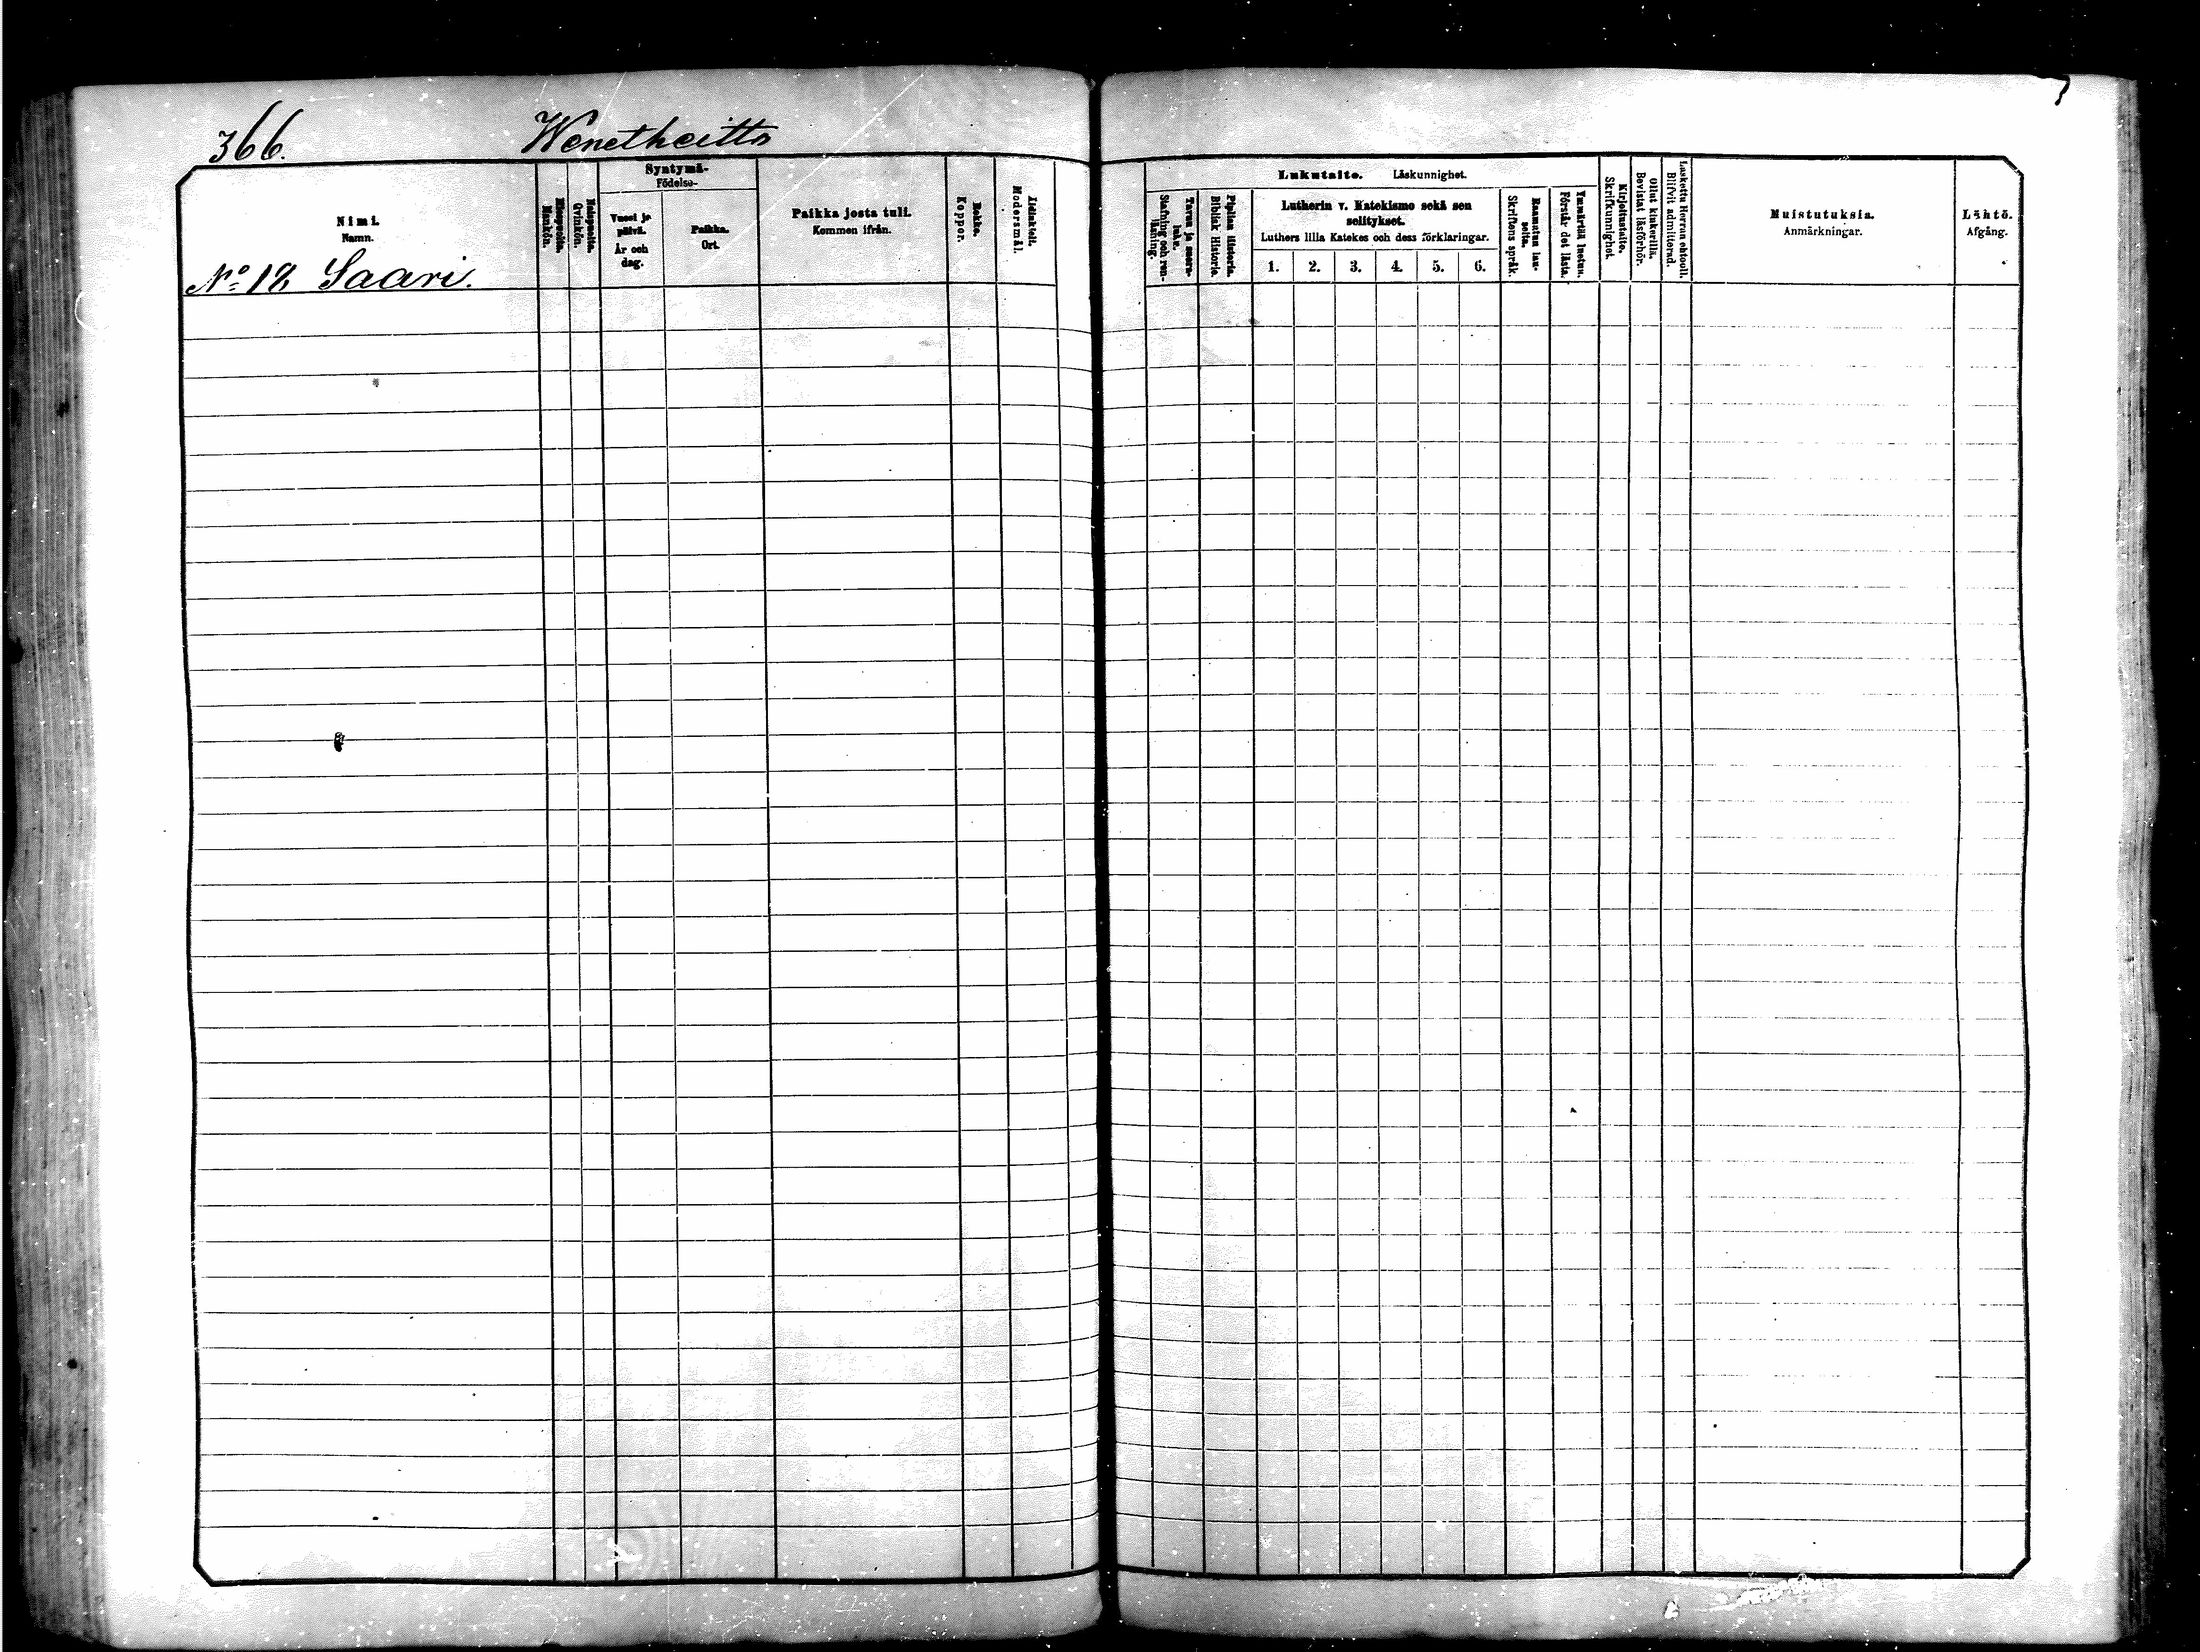 366.
Wenetheitto
Nimi.
Namn.
Miespuolta.
Mankön.
Naispuolta.
Qvinkön.
Syntymä-
Födelse-
Vuosi ja
päivä.
År och
dag.
Paikka.
Ort.
Paikka josta tuli.
Kommen ifrån.
Rokko.
Koppor.
Äidinkieli.
Modersmål.
No 18 Saari.
Lukutaito. Läskunnighet.
Tavuu ja suora-
luku.
Stafning och ren-
läsning.
Piplian Historia.
Biblisk Historie.
Lutherin v. Katekismo sekä sen
selitykset.
Luthers lilla Katekes och dess förklaringar.
1. 2. 3. 4. 5. 6.
Raamatun lau-
seita.
Skriftens språk.
Ymmärtää luetun.
Förstår det lästa.
Kirjoitustaito.
Skrifkunnighet
Ollut kinkerillä.
Bevistat läsförhör.
Laskettu Herran ehtooll.
Blifvit admitterad.
Muistutuksia.
Anmärkningar.
Lähtö.
Afgång.